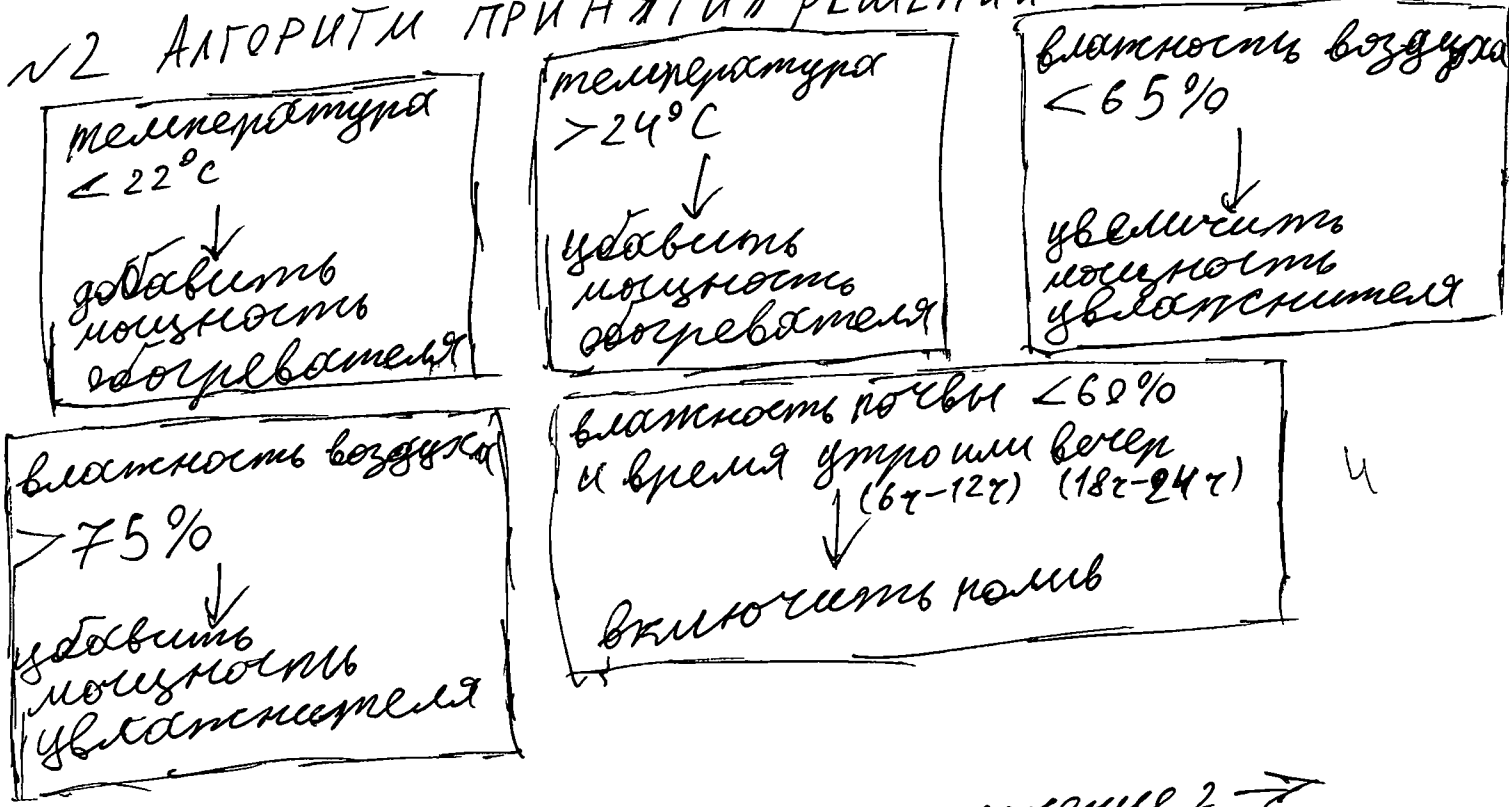 №2 АЛГОРИТМ ПРИНЯТИЯ РЕШЕНИЙ
температура
<22°C
↓
добавить
мощность
обогревателя
температура
>24°C
↓
убавить
мощность
обогревателя
влажность воздуха
<65%
↓
увеличить
мощность
увлажнителя
влажность воздуха
>75%
↓
убавить
мощность
увлажнителя
влажность почвы <60%
и время утро или вечер
(6ч-12ч) (18ч-24ч)
↓
включить полив
ч
2 →